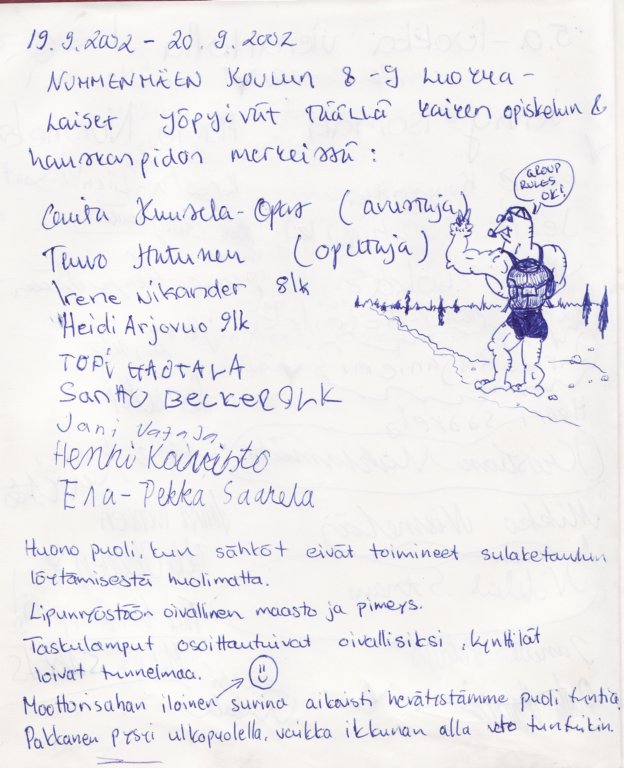 19.9.2002 - 20.9.2002
NUMMENMÄEN KOULUN 8-9 LUOKKA-
LAISET YÖPYIVÄT TÄÄLLÄ kaiken opiskelun &
hauskanpidon merkeissä:
GROUP
RULES
OK!
Kuusela- (avustaja)
Teuvo Hatunen (opettaja)
Irene Nikander 8lk
Heidi Arjovuo 9lk
TOPI HAOTALA
SanttU BECKER 9LK
Jani Vataja
Henni Koivisto
Esa-Pekka Saarela
Huono puoli, kun sähköt eivät toimineet sulaketaulun
löytämisestä huolimatta.
Lipunryöstöön oivallinen maasto ja pimeys.
Taskulamput osoittautuivat oivallisiksi, kynttilät
loivat tunnelmaa.
Moottorisahan iloinen surina aikaisti herätystämme puoli tuntia.
Pakkanen pysyi ulkopuolella, vaikka ikkunan alla veto tuntuikin.